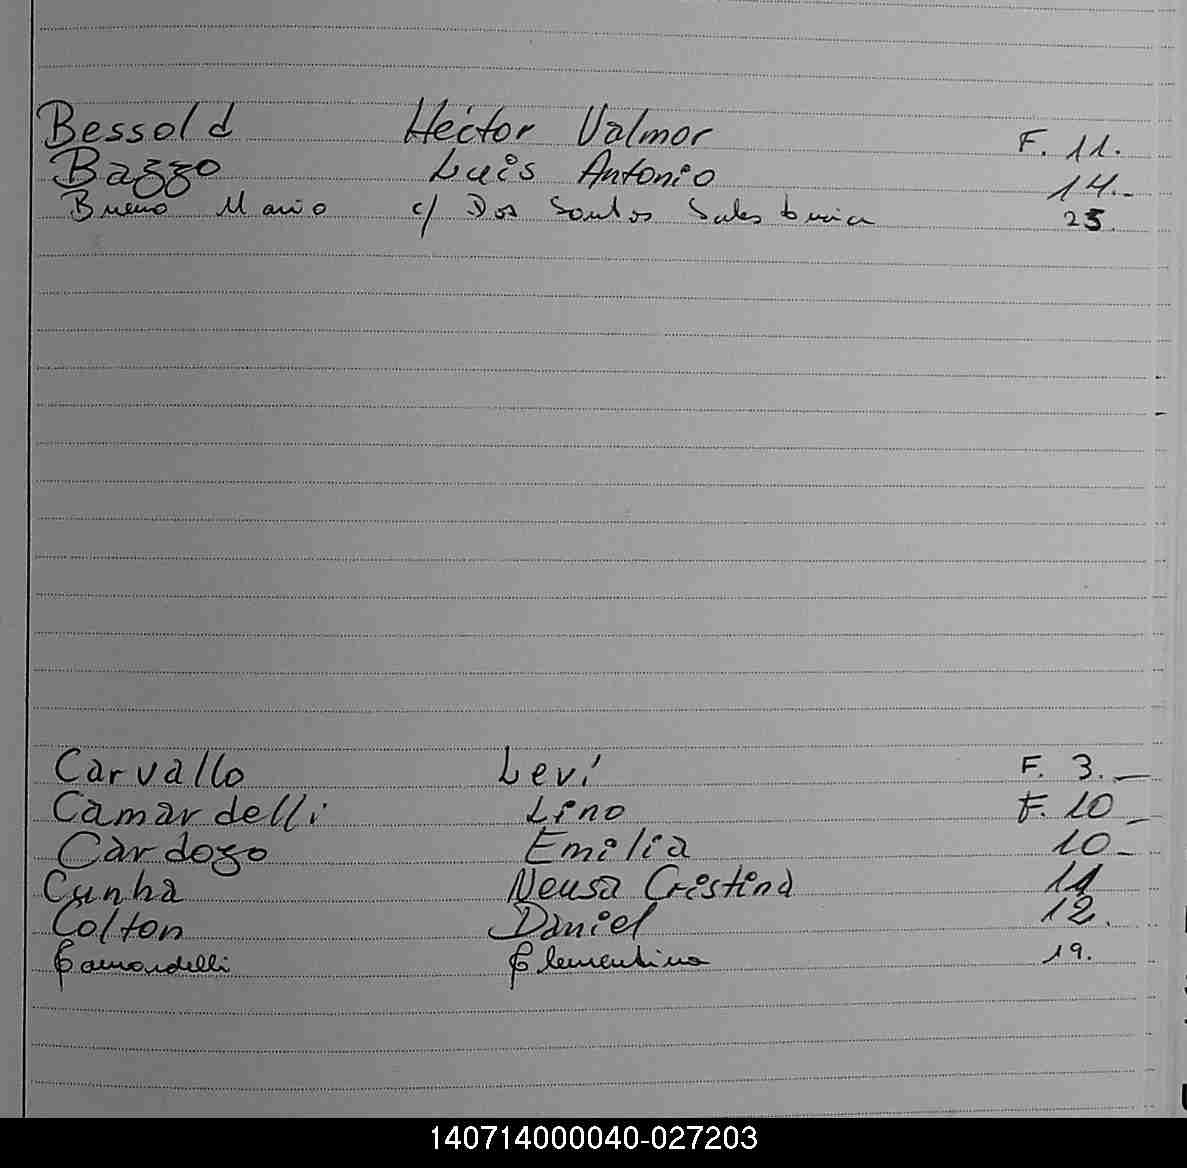 Bessold Hector Valmor F. 11.
Bazzo Luis Antonio 14.-
Bueno Mario c/ Dos Santos Sales 25.
Carvallo Levi F. 3.—
Camardelli Lino F. 10 —
Cardozo Emilia 10-
Cunha Neusa Cristina 11
Colton Daniel 12.
Camardelli Clementina 19.
140714000040-027203